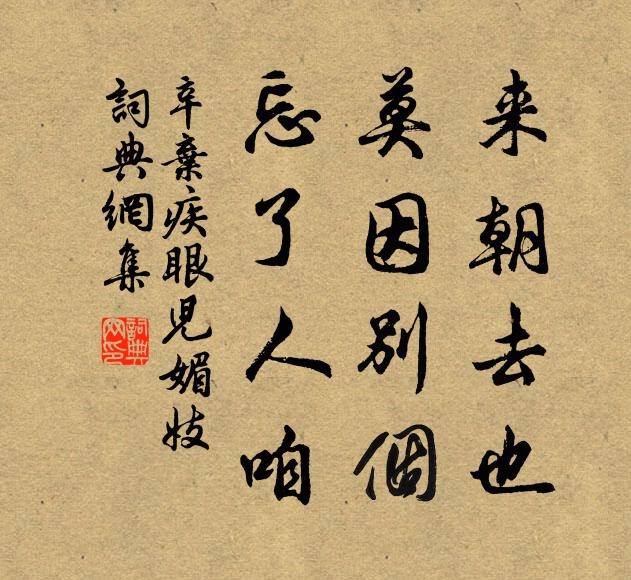 来朝去也
莫因别個
忘了人咱
辛棄疾眼児媚妓
詞典網集
詞典网印